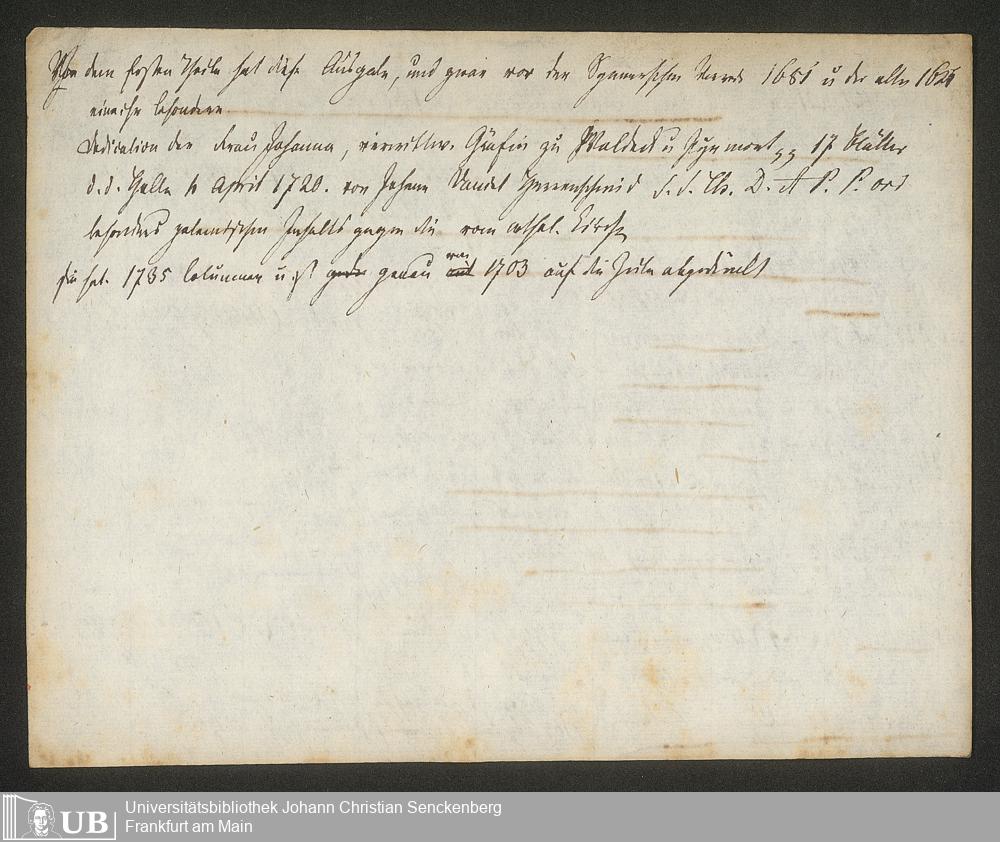 Von dem ersten Theile hat diese Ausgabe, und zwar vor der Spenerschen Vorrede 1681 u der alten
eine sehr besondere
Dedication der Frau Johanna, verwittw. Gräfin zu Waldeck u Pyrmont, 17 Blätter
d. d. Halle April 1720. von Johann Daniel Herrnschmid S. S. Th. D. A P. P. ord
besonders polemischen Inhalts gegen die röm cathol. Kirche
sie hat 1735 Columnen u. ist genau 1703 auf die Zeile abgedruckt
Universitätsbibliothek Johann Christian Senckenberg
Frankfurt am Main
UB